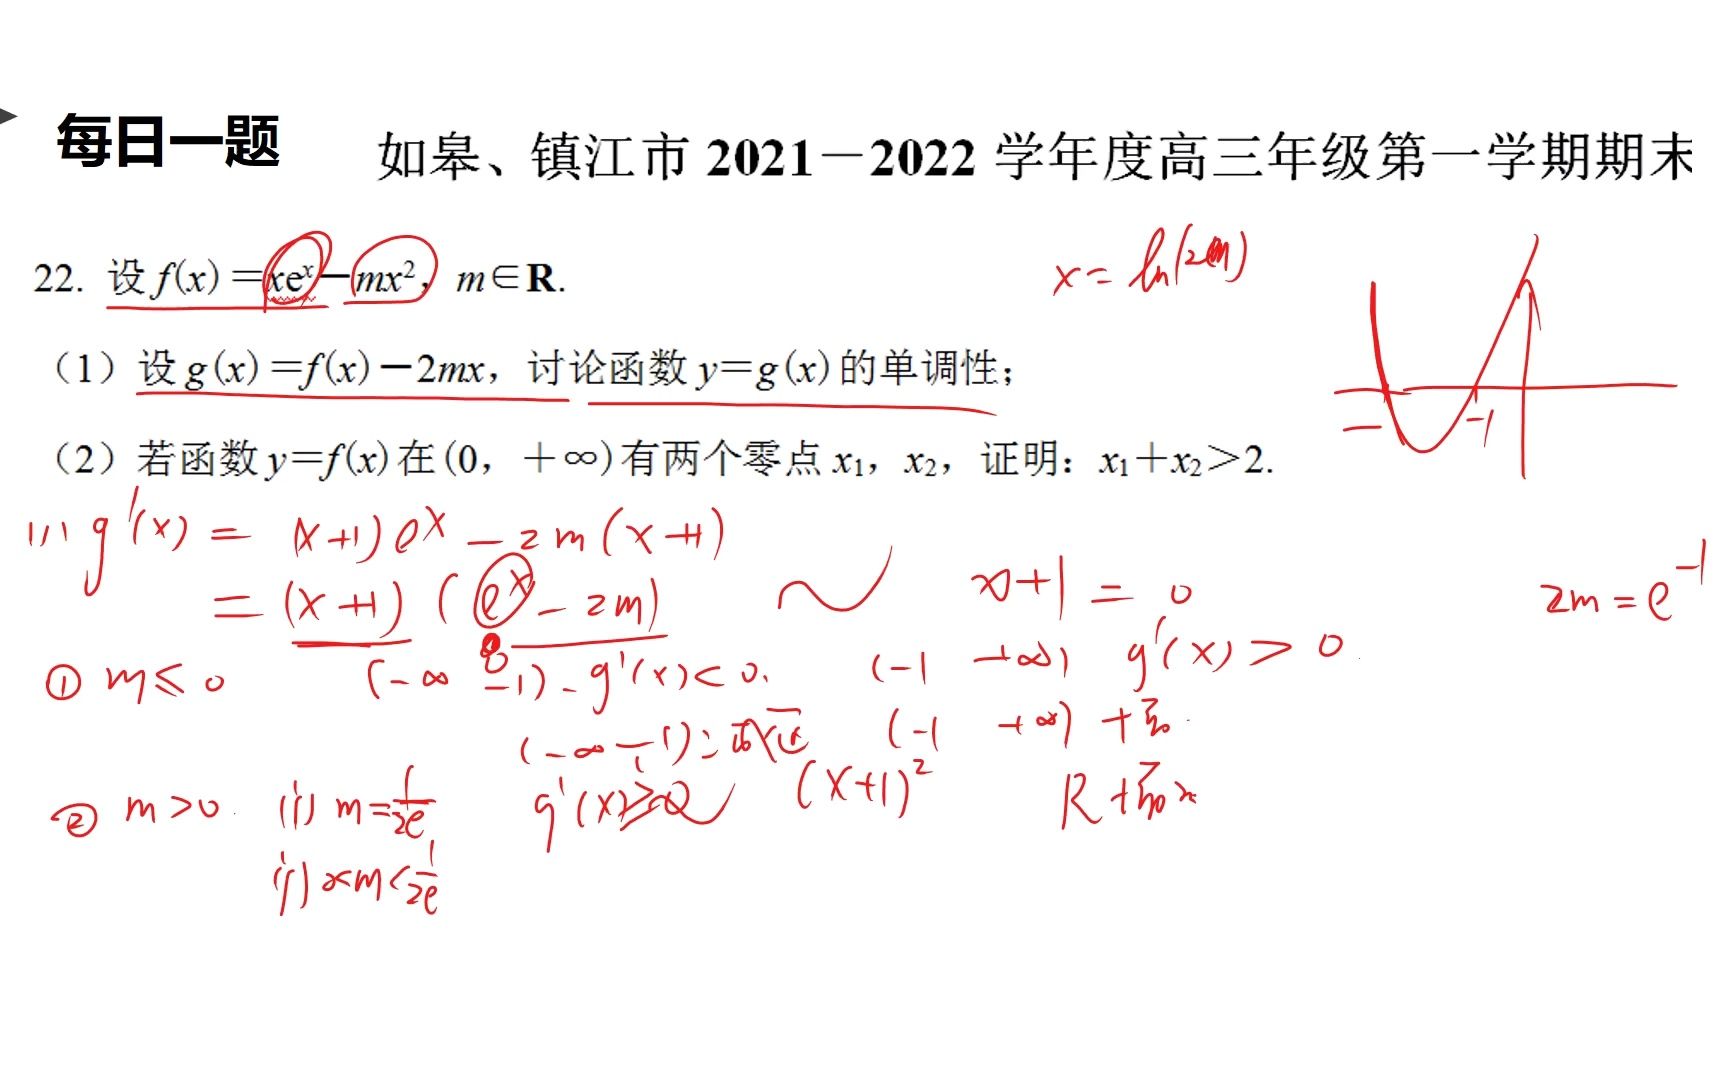 每日一题
如皋、镇江市 2021－2022 学年度高三年级第一学期期末
22. 设 f(x)＝xeˣ－mx², m∈R.
x = ln(2m)
（1）设 g(x)＝f(x)－2mx，讨论函数 y＝g(x) 的单调性；
-1
（2）若函数 y＝f(x) 在 (0，＋∞) 有两个零点 x₁，x₂，证明：x₁＋x₂＞2.
(1) g'(x) = (x+1)eˣ - 2m(x+1)
= (x+1)(eˣ - 2m)
x+1 = 0
2m = e⁻¹
① m≤0 (-∞ -1) g'(x)<0. (-1 +∞) g'(x)>0.
(-∞ -1) (-1 +∞)
② m>0. (i) m=1/2e g'(x)≥0 (x+1)² R
(ii) 0<m<1/2e